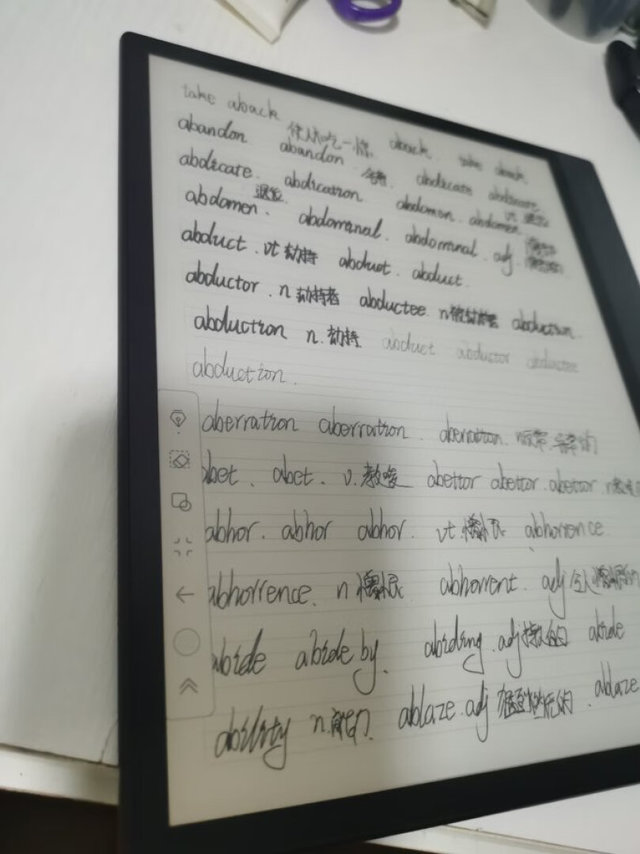 take aback 使人吃一惊 aback. take aback
abandon abandon abdicate abdicate
abdicate. abdication abdomen. abdomen. vt 退位
abdomen. 退位 abdominal. abdominal. adj
abduct. vt 劫持 abduct. abduct.
abductor. n 劫持者 abductee. n 被劫持者 abduction
abduction n. 劫持 abduct abductor abductee
abduction.
aberration aberration. aberration.
abet. abet. v. 教唆 abettor abettor. abettor
abhor. abhor abhor. vt 憎恨 abhorrence
abhorrence. n 憎恨 abhorrent. adj 令人憎恨的
abide abide by. abiding. adj 持久的 abide
ability n. 能力 ablaze. adj 猛烈燃烧的. ablaze